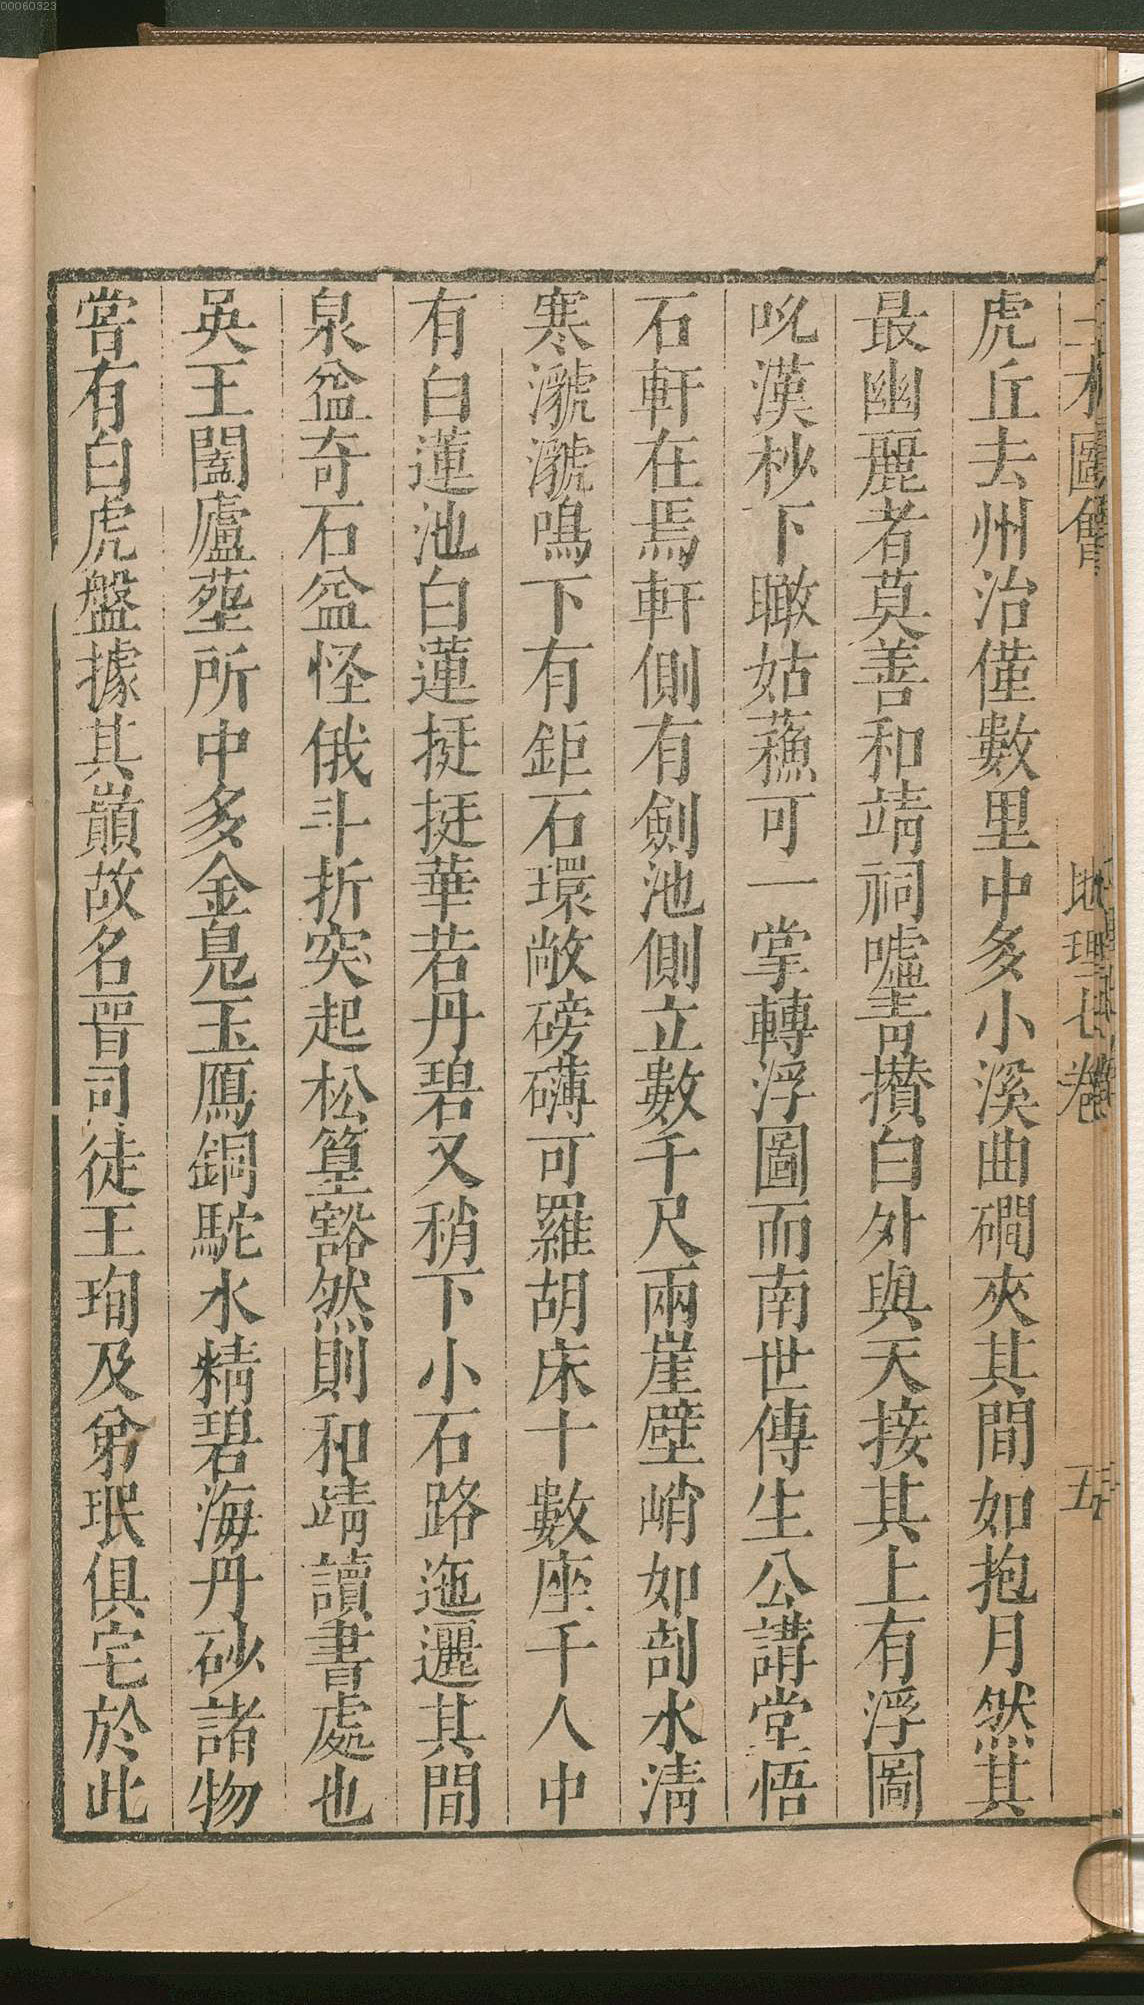 00060323
三才圖會 地理七卷 五
虎丘去州治僅數里中多小溪曲磵夾其間如抱月然其
最幽麗者莫善和靖祠噓青攢白外與天接其上有浮圖
吮漢杪下瞰姑蘓可一掌轉浮圖而南世傳生公講堂悟
石軒在焉軒側有劍池側立數千尺兩崖壁峭如剖水清
寒瀦瀦鳴下有鉅石環敞磅礴可羅胡床十數座千人中
有白蓮池白蓮挺挺華若丹碧又稍下小石路迤邐其間
泉益奇石益怪俄斗折突起松篁豁然則和靖讀書處也
吳王闔廬塟所中多金鳧玉鴈銅駝水精碧海丹砂諸物
嘗有白虎盤據其巔故名晉司徒王珣及弟珉俱宅於此